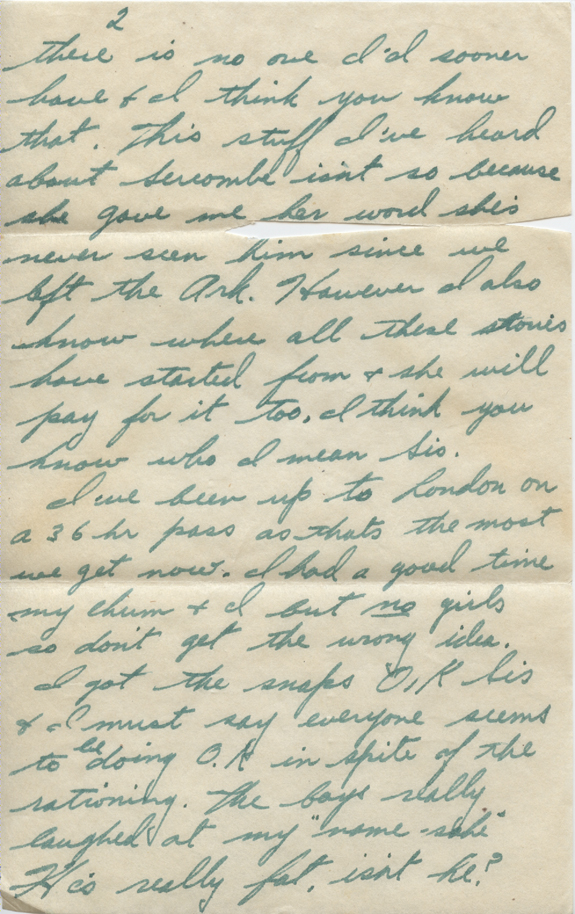 2
there is no one I'd sooner
have & I think you know
that. This stuff I've heard
about Sercombe isn't so because
she gave me her word she's
never seen him since we
left the Ark. However I also
know where all these stories
have started from & she will
pay for it too. I think you
know who I mean Sis.
I've been up to London on
a 36 hr pass as thats the most
we get now. I had a good time
my chum & I but no girls
so don't get the wrong idea.
I got the snaps O.K Sis
& I must say everyone seems
to be doing O.K in spite of the
rationing. The boys really
laughed at my "name-sake"
He's really fat, isn't he?